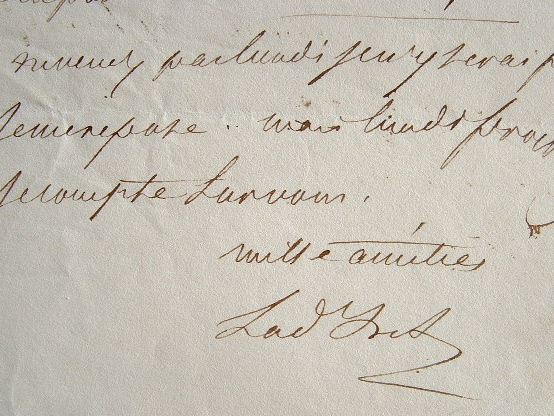 venez pas lundi je n'y serai p
Je me repose. mais lundi proch
Je compte sur vous.
mille amitiés